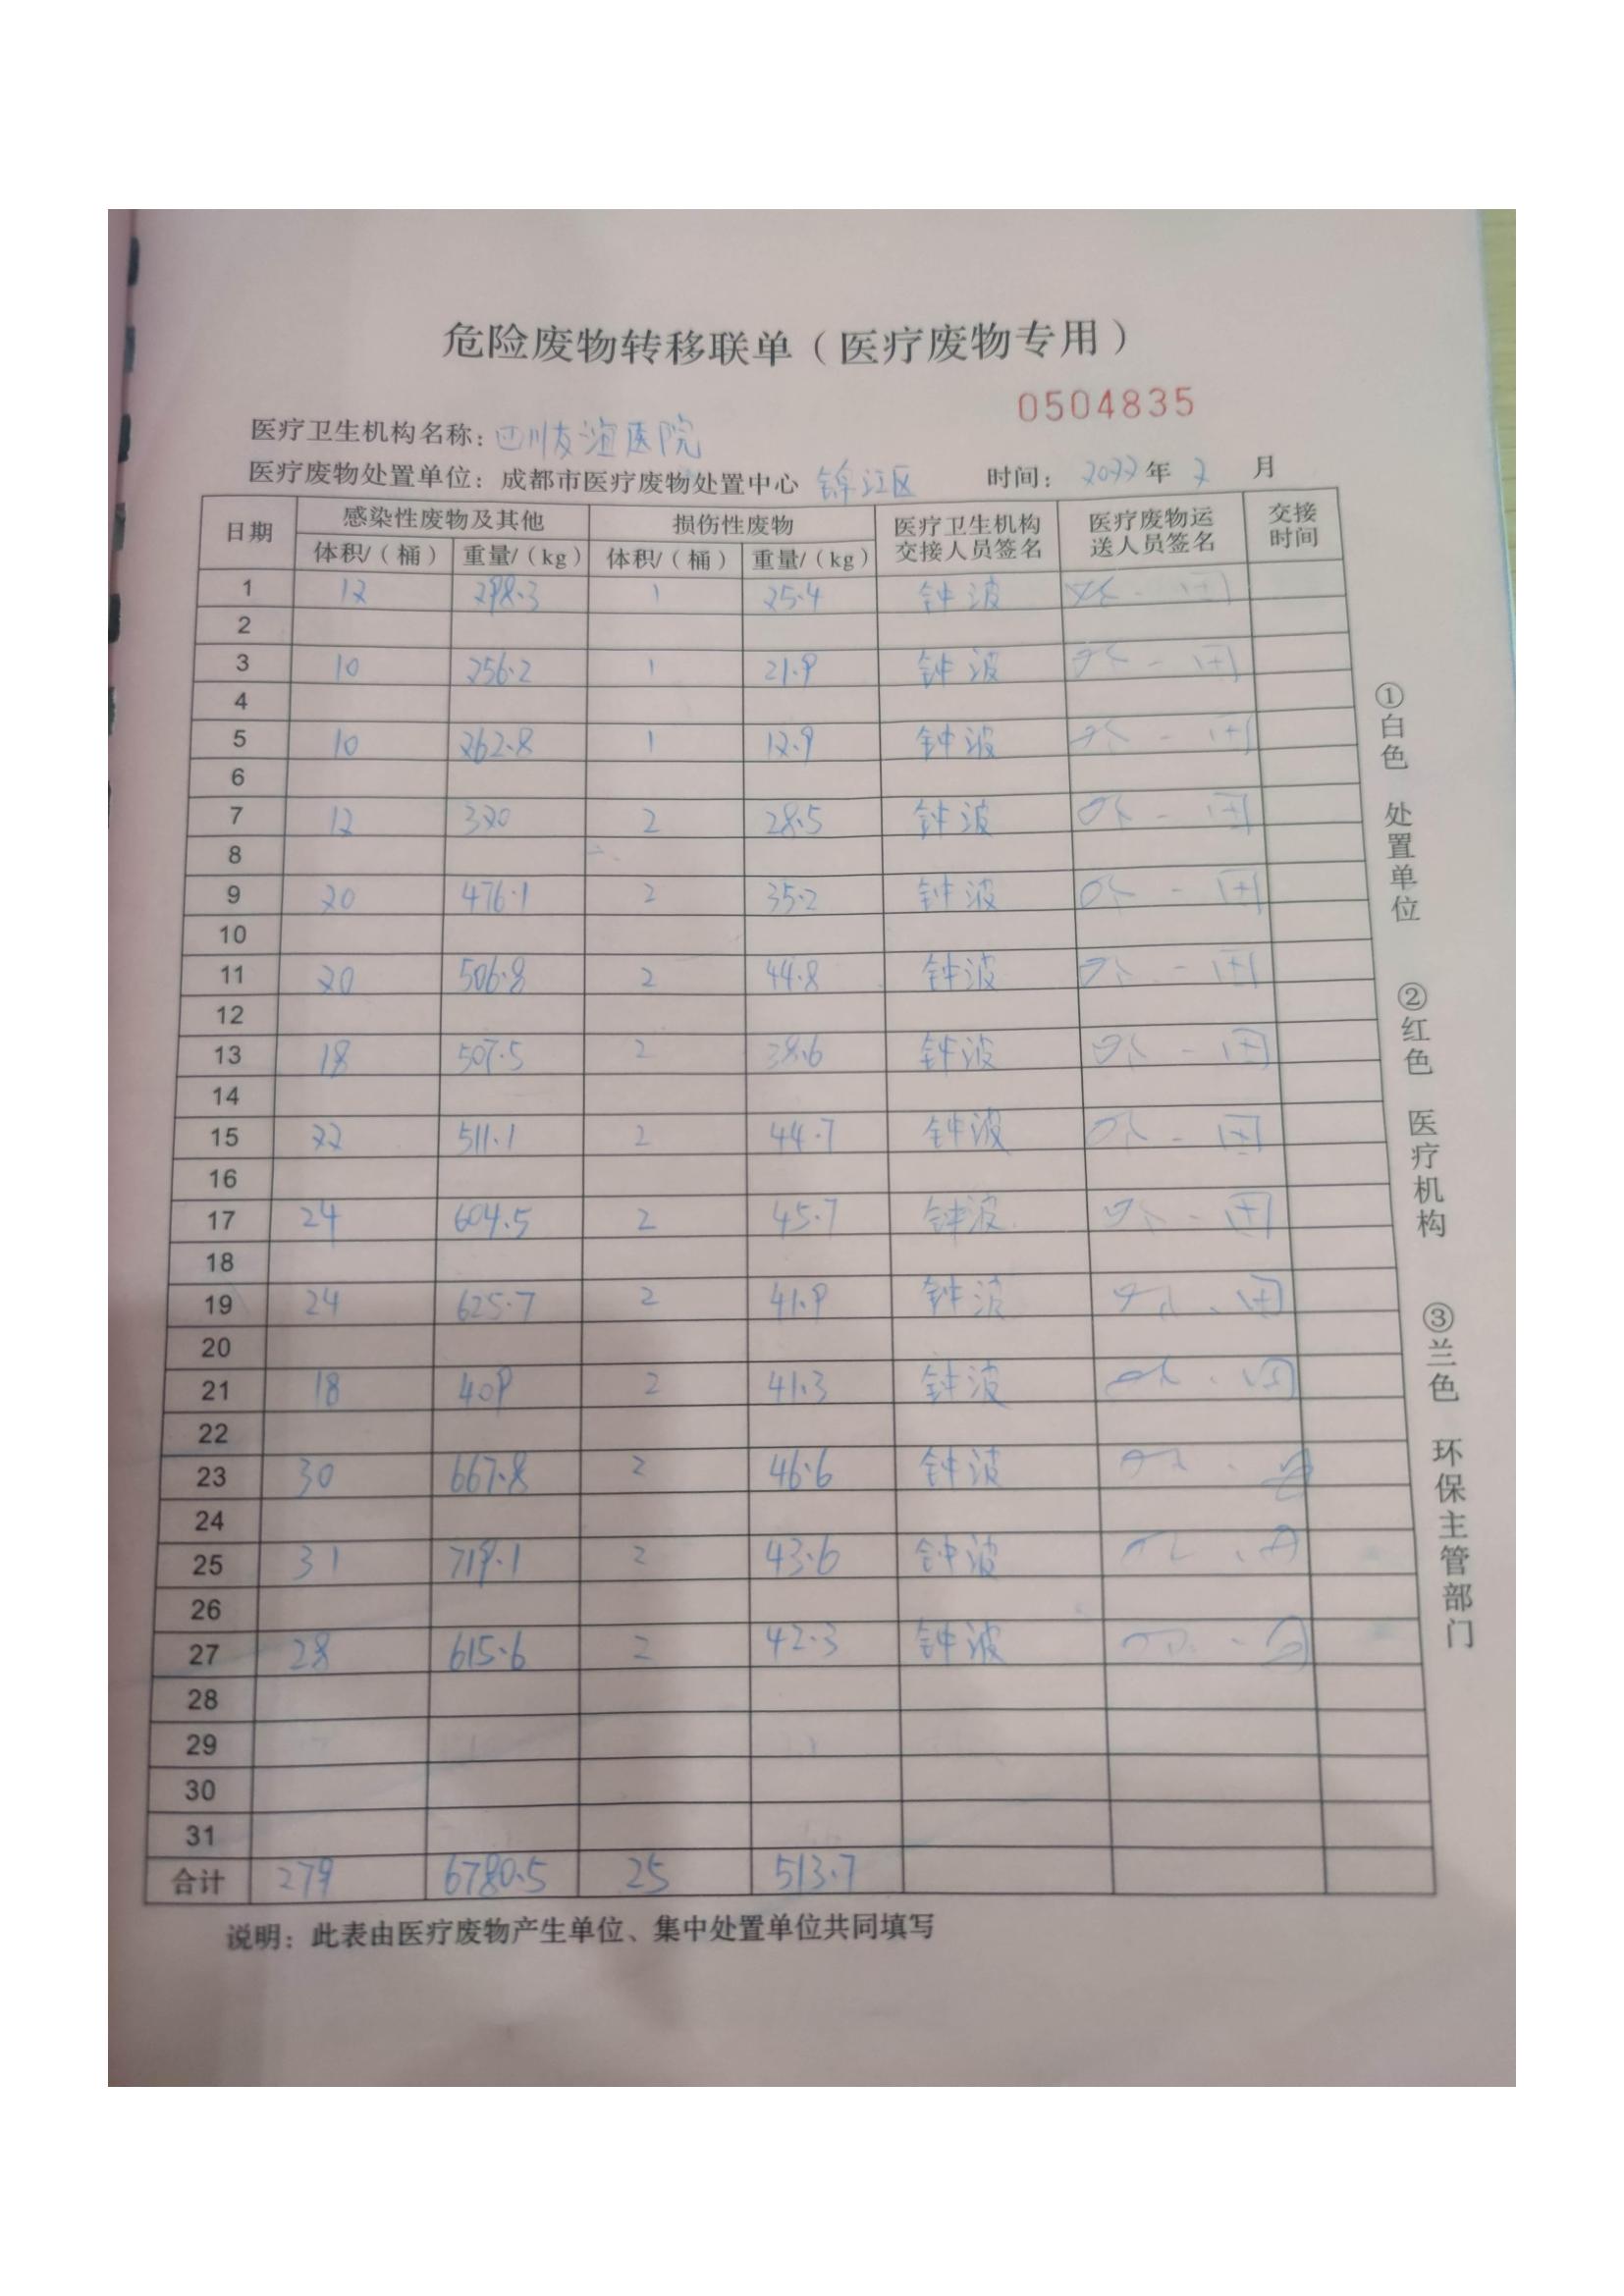 危险废物转移联单（医疗废物专用）
0504835
医疗卫生机构名称：四川友谊医院
医疗废物处置单位：成都市医疗废物处置中心 锦江区 时间：2022年2月
日期 感染性废物及其他 损伤性废物 医疗卫生机构交接人员签名 医疗废物运送人员签名 交接时间
体积/（桶） 重量/（kg） 体积/（桶） 重量/（kg）
1 12 298.3 1 25.4 钟波
2
3 10 256.2 1 21.9 钟波
4
5 10 262.8 1 12.9 钟波
6
7 12 320 2 28.5 钟波
8
9 20 476.1 2 35.2 钟波
10
11 20 506.8 2 44.8 钟波
12
13 18 507.5 2 38.6 钟波
14
15 22 511.1 2 44.7 钟波
16
17 24 604.5 2 45.7 钟波
18
19 24 625.7 2 41.9 钟波
20
21 18 409 2 41.3 钟波
22
23 30 667.8 2 46.6 钟波
24
25 31 719.1 2 43.6 钟波
26
27 28 615.6 2 42.3 钟波
28
29
30
31
合计 279 6780.5 25 513.7
说明：此表由医疗废物产生单位、集中处置单位共同填写
①白色 处置单位 ②红色 医疗机构 ③兰色 环保主管部门